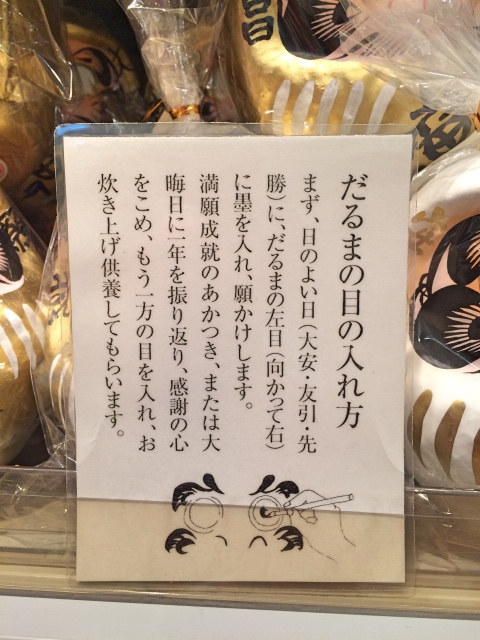 だるまの目の入れ方
まず、日のよい日(大安・友引・先
勝)に、だるまの左目(向かって右)
に墨を入れ、願かけします。
満願成就のあかつき、または大
晦日に一年を振り返り、感謝の心
をこめ、もう一方の目を入れ、お
炊き上げ供養してもらいます。